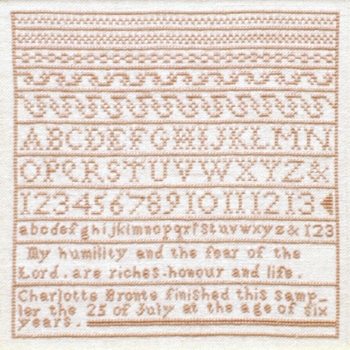 ABCDEFGHIJKLMN
OPQRSTUVWXYZ&
12345678910111213
abcdefghijklmnopqrstuvwxyz&123
My humility and the fear of the
Lord. are riches-honour and life.
Charlotte Bronte finished this samp_
ler the 25 of July at the age of six
years.